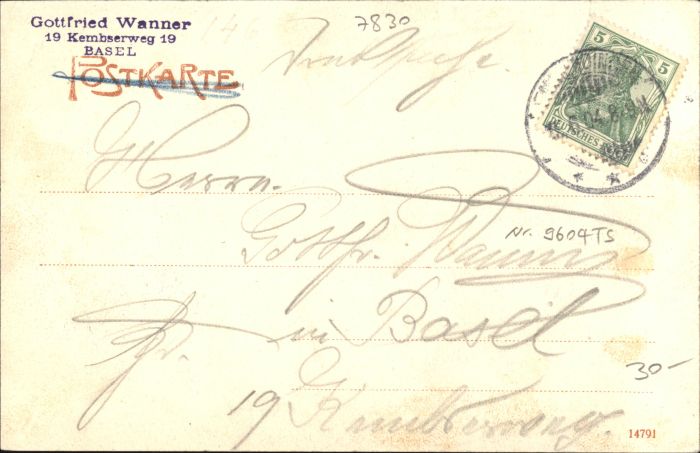 Gottfried Wanner
19 Kembserweg 19
BASEL
7830
POSTKARTE
Drucksache
5 5
DEUTSCHES REICH
Herrn
Gottfr. Wanner
Nr. 9604TS
in Basel
30-
19 Kembserweg.
14791